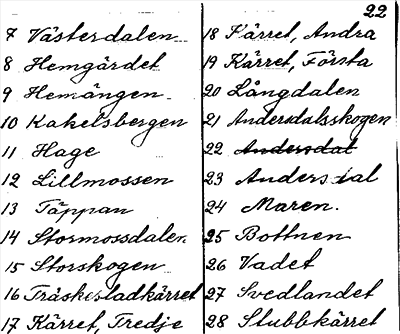 22
7 Västerdalen
8 Hemgärdet
9 Hemängen
10 Kakelsbergen
11 Hage
12 Lillmossen
13 Täppan
14 Stormossdalen
15 Storskogen
16 Träskestadkärret
17 Kärret, Tredje
18 Kärret, Andra
19 Kärret, Första
20 Långdalen
21 Andersdalsskogen
22 Andersdal
23 Andersdal
24 Maren.
25 Bottnen
26 Vadet
27 Svedlandet
28 Stubbkärret